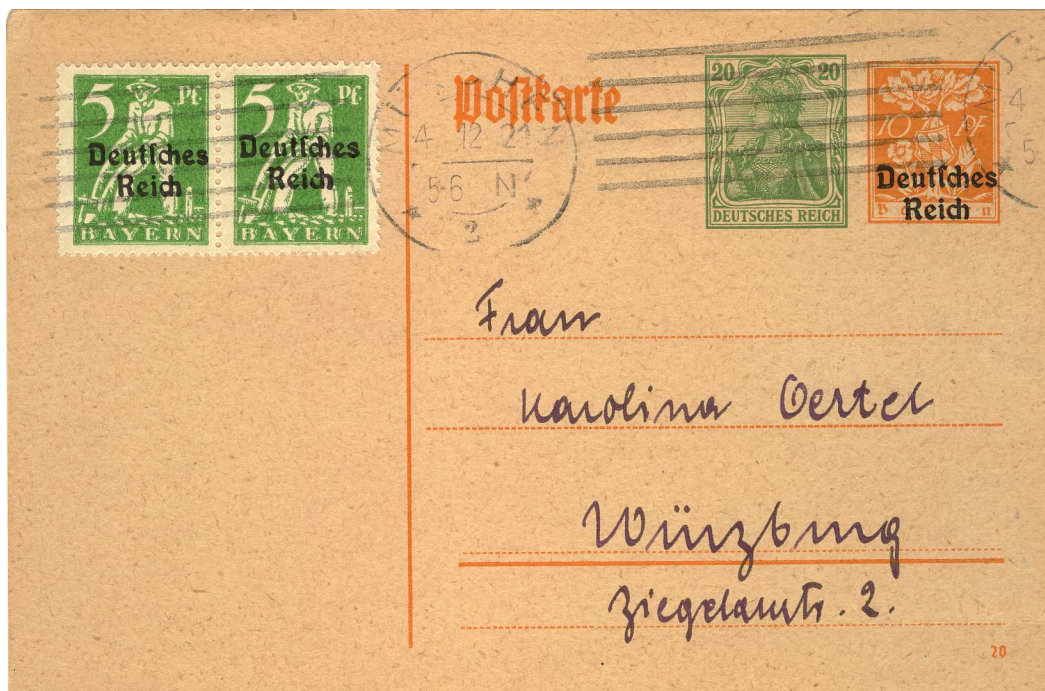 5 Pf.
Deutsches
Reich
BAYERN
5 Pf.
Deutsches
Reich
BAYERN
MÜNCHEN
4 12 21
5-6 N
2
Postkarte
20 20
DEUTSCHES REICH
10 PF
Deutsches
Reich
B n
Frau
Karolina Oertel
Würzburg
Ziegelaustr. 2.
20